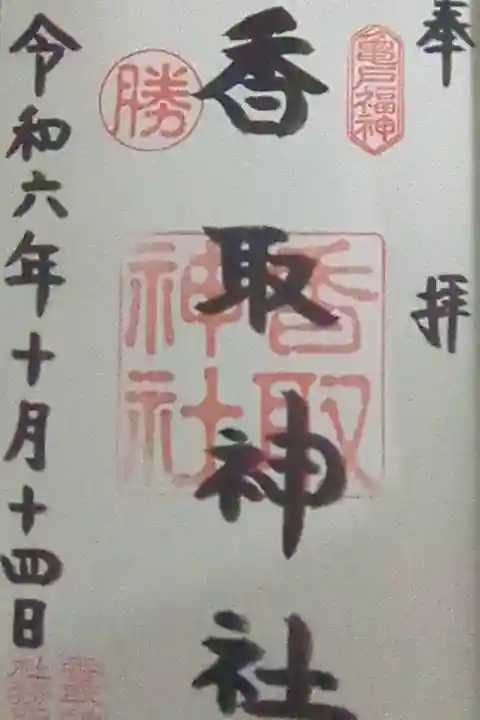 奉拝
亀戸福神
香取神社
香取
神社
勝
令和六年十月十四日